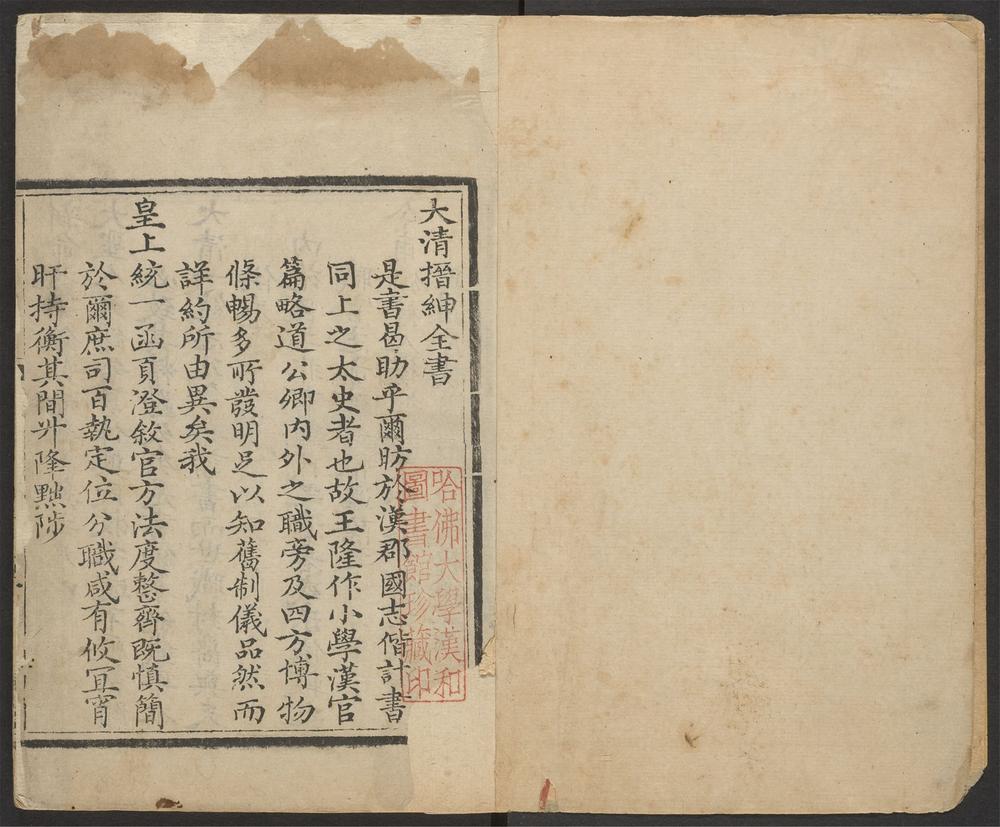 大清搢紳全書
是書曷助乎爾昉於漢郡國志偕計書
同上之太史者也故王隆作小學漢官
篇略道公卿內外之職旁及四方博物
條暢多所發明足以知舊制儀品然而
詳約所由異矣我
皇上統一函夏澄敘官方法度整齊既慎簡
於爾庶司百執定位分職咸有攸宜宵
旰持衡其間升隆黜陟
哈佛大學漢和
圖書館珍藏印